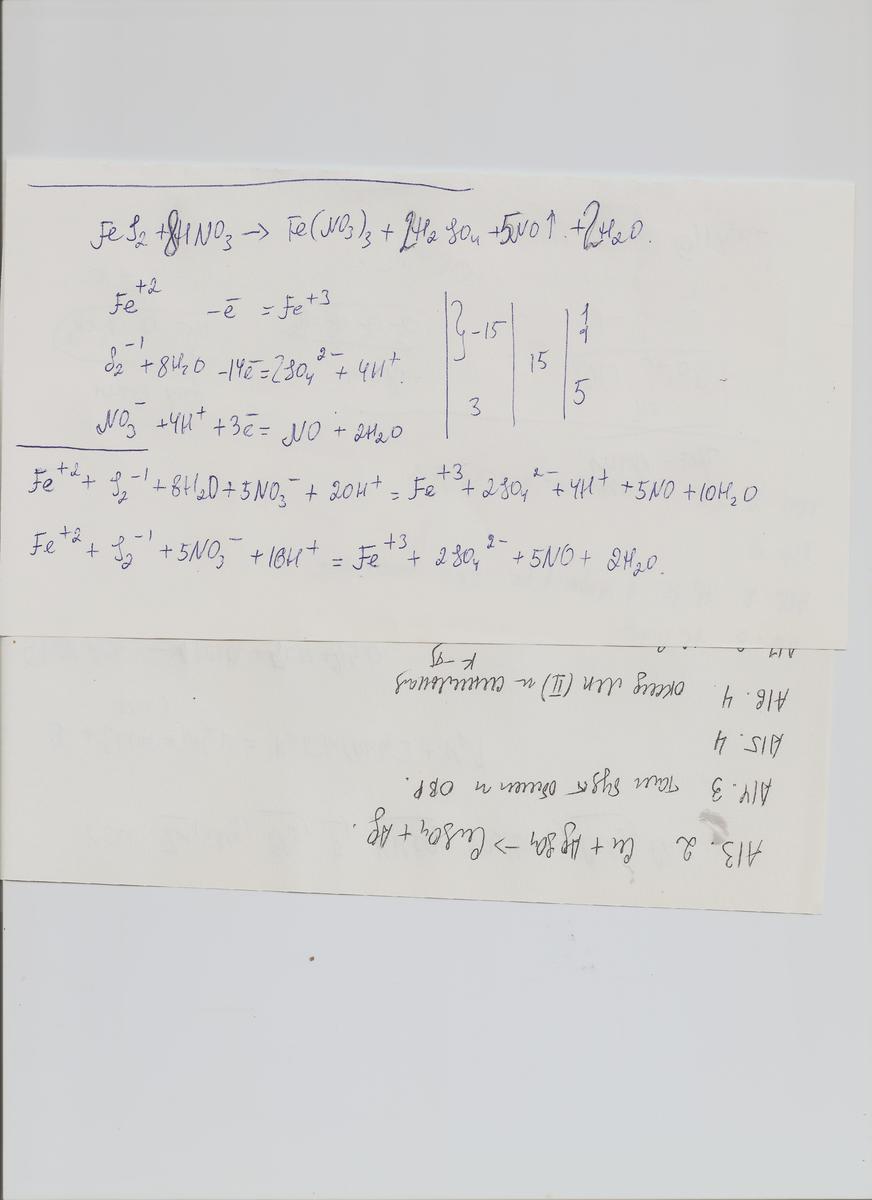 FeS₂ + 8HNO₃ → Fe(NO₃)₃ + 2H₂SO₄ + 5NO↑ + 2H₂O.
Fe⁺² - ē = Fe⁺³ } -15 | 15 | 1
S₂⁻¹ + 8H₂O - 14ē = 2SO₄²⁻ + 4H⁺. 1
NO₃⁻ + 4H⁺ + 3ē = NO + 2H₂O 3 | 5
Fe⁺² + S₂⁻¹ + 8H₂O + 5NO₃⁻ + 20H⁺ = Fe⁺³ + 2SO₄²⁻ + 4H⁺ + 5NO + 10H₂O
Fe⁺² + S₂⁻¹ + 5NO₃⁻ + 16H⁺ = Fe⁺³ + 2SO₄²⁻ + 5NO + 2H₂O.
A13. 2 Cu + AgSO₄ → CuSO₄ + Ag.
A14. 3 там будет обмен и ОВР.
A15. 4
A16. 4 оксид (II) и
к-я